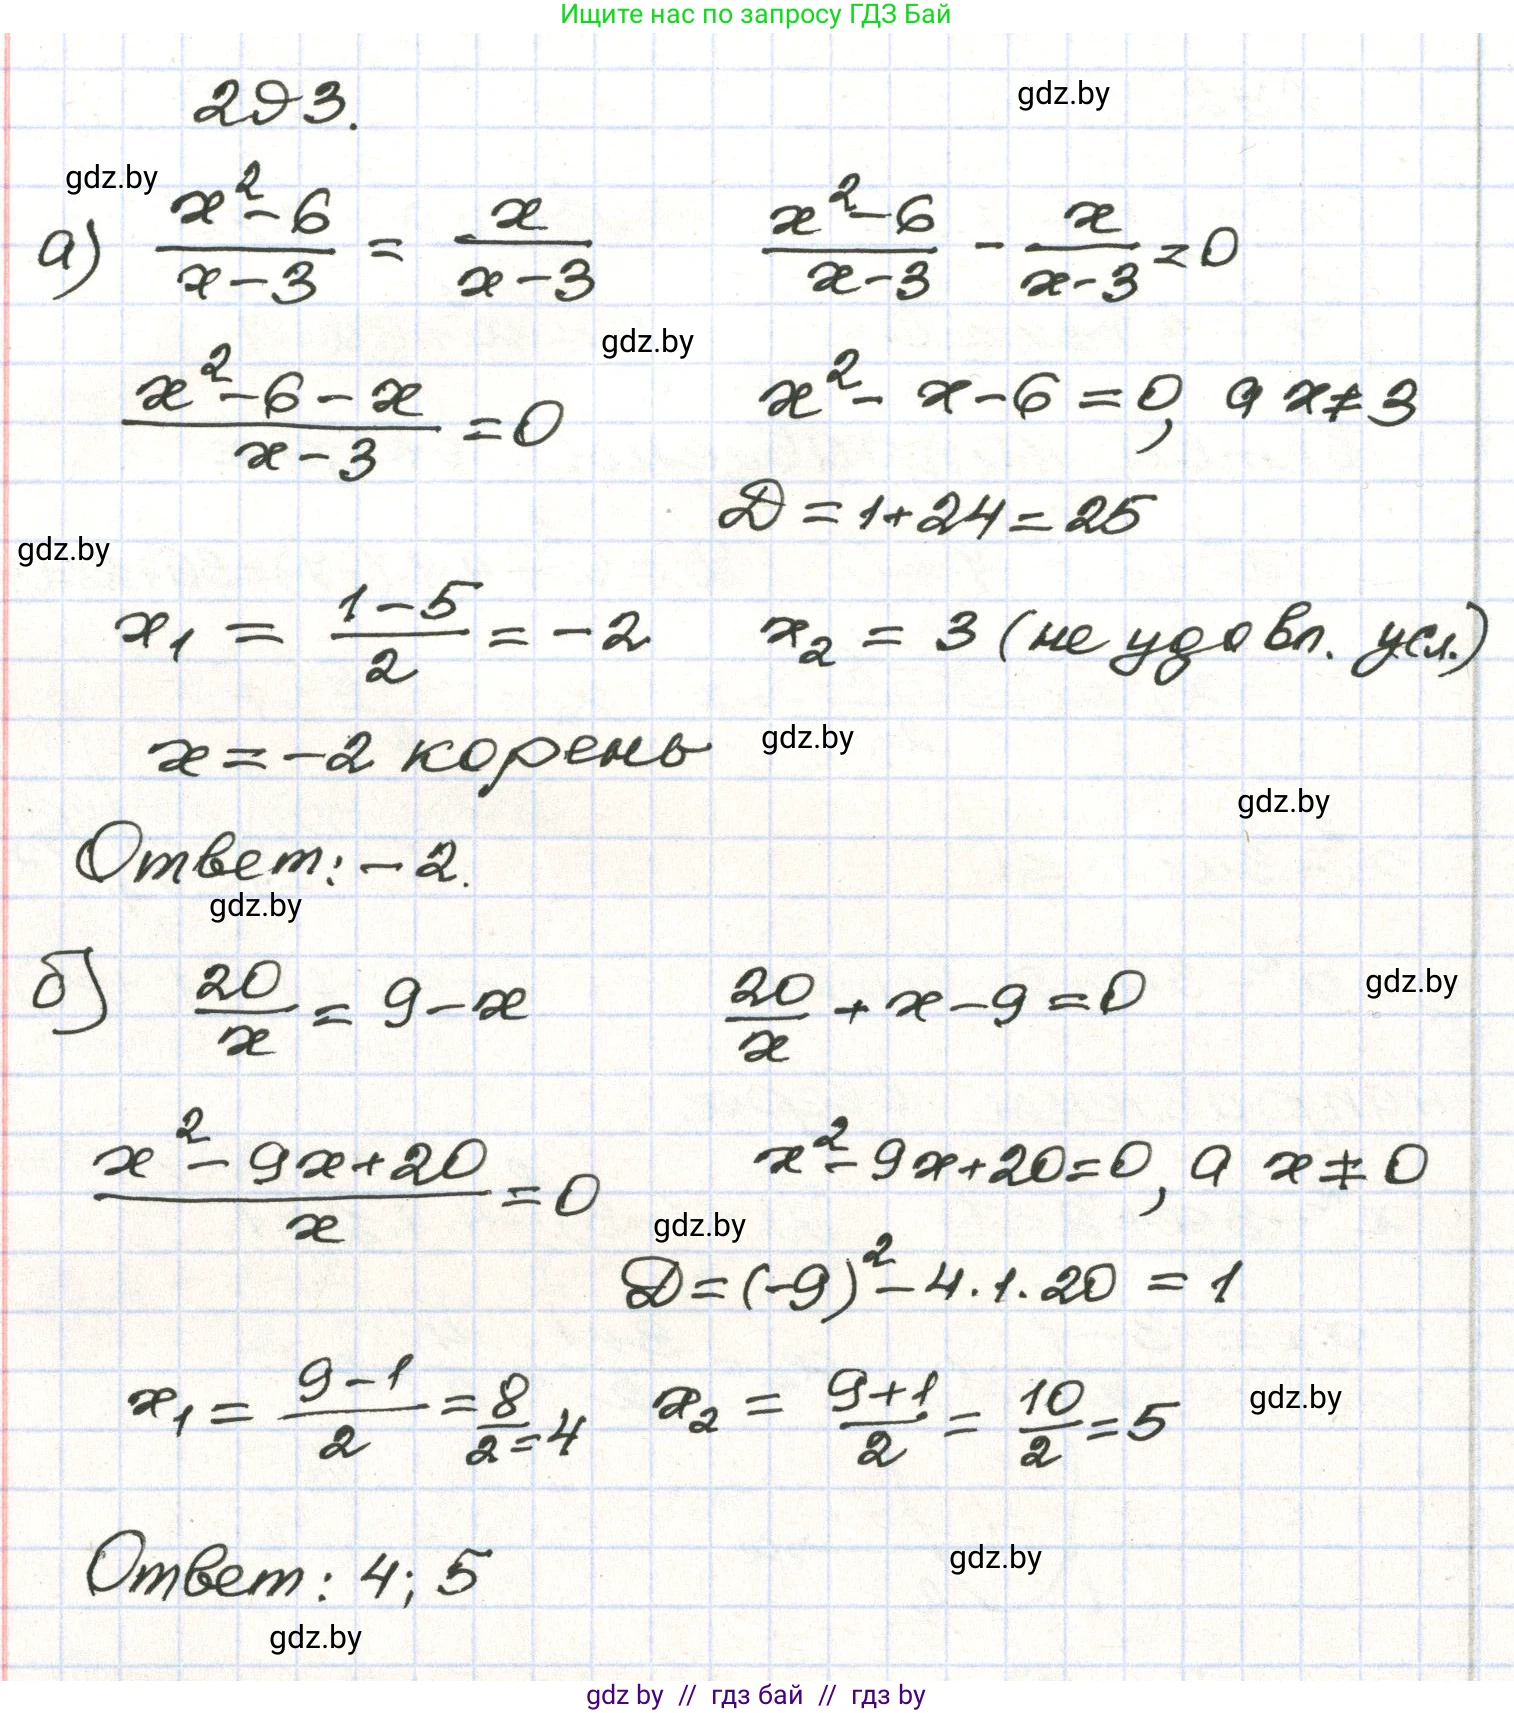 Ищите нас по запросу ГДЗ Бай
293.
gdz.by
gdz.by
а) (x² - 6)/(x - 3) = x/(x - 3)    (x² - 6)/(x - 3) - x/(x - 3) = 0
gdz.by
(x² - 6 - x)/(x - 3) = 0    x² - x - 6 = 0, а x ≠ 3
D = 1 + 24 = 25
gdz.by
x₁ = (1 - 5)/2 = -2    x₂ = 3 (не удовл. усл.)
x = -2 корень
gdz.by
gdz.by
Ответ: -2.
gdz.by
б) 20/x = 9 - x    20/x + x - 9 = 0
gdz.by
(x² - 9x + 20)/x = 0    x² - 9x + 20 = 0, а x ≠ 0
gdz.by
D = (-9)² - 4·1·20 = 1
x₁ = (9 - 1)/2 = 8/2 = 4    x₂ = (9 + 1)/2 = 10/2 = 5
gdz.by
Ответ: 4; 5
gdz.by
gdz.by
gdz by // гдз бай // гдз by